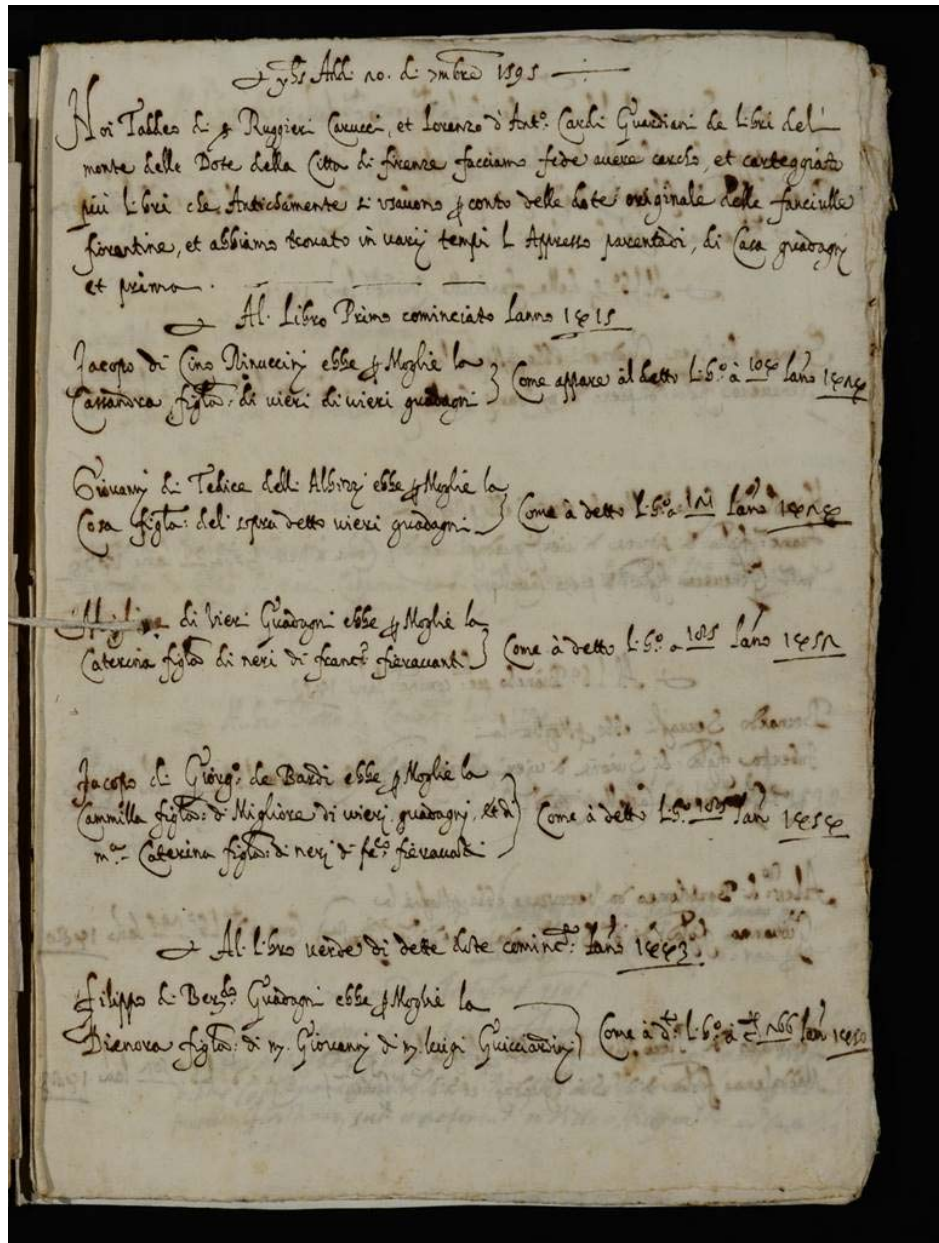 Addi 20. di 7mbre 1595
Noi Taddeo di Ruggieri Carucci, et Lorenzo d'Ant.º Cardi Guardiani de libri del
monte delle Dote della Citta di firenze facciamo fede avere cercho, et carteggiato
piu libri che Antichamente si usavono conto delle dote originale delle fanciulle
fiorentine, et abbiamo trovato in varij tempi l Appresso parentadi, di Casa guadagnj
et prima.
Al. Libro Primo cominciato lanno 1415
Jacopo di Cino Rinuccinj ebbe p Moglie la
Cassandra figla: di vieri di vieri guadagni } Come appare al detto lib.º à 104 lanº 1424
Giovannj di Tedice delli Albizzj ebbe p Moglie la
Cosa figla: del sopra detto vieri guadagni } Come à detto lib.º a 121 lanº 1424
di Vieri Guadagni ebbe p Moglie la
Caterina figla di neri di franc.º fieravanti } Come à detto lib.º a 185 lano 1452
Jacopo di Giorg.º de Bardi ebbe p Moglie la
Cammilla figla: di Migliore di vierj guadagnj, et di } Come à detto Lib.º 185 lan 1454
m.ª Caterina figla: di nerj di fc.º fieravanti
Al. libro verde di dette dote cominc.to lanº 1443
Filippo di Ber.do Guadagni ebbe p Moglie la
Dianora figla: di m. Giovannj di m. luigi Guicciardinj } Come à d.º Lib.º à 266 lan 1450